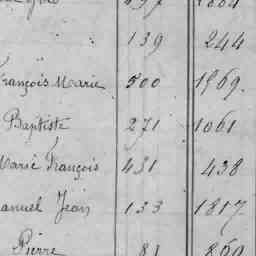 139 244
François Marie 500 1569.
Baptiste 271 1061
Marie François 431 438
anuel Jean 133 1817
Pierre 81 860